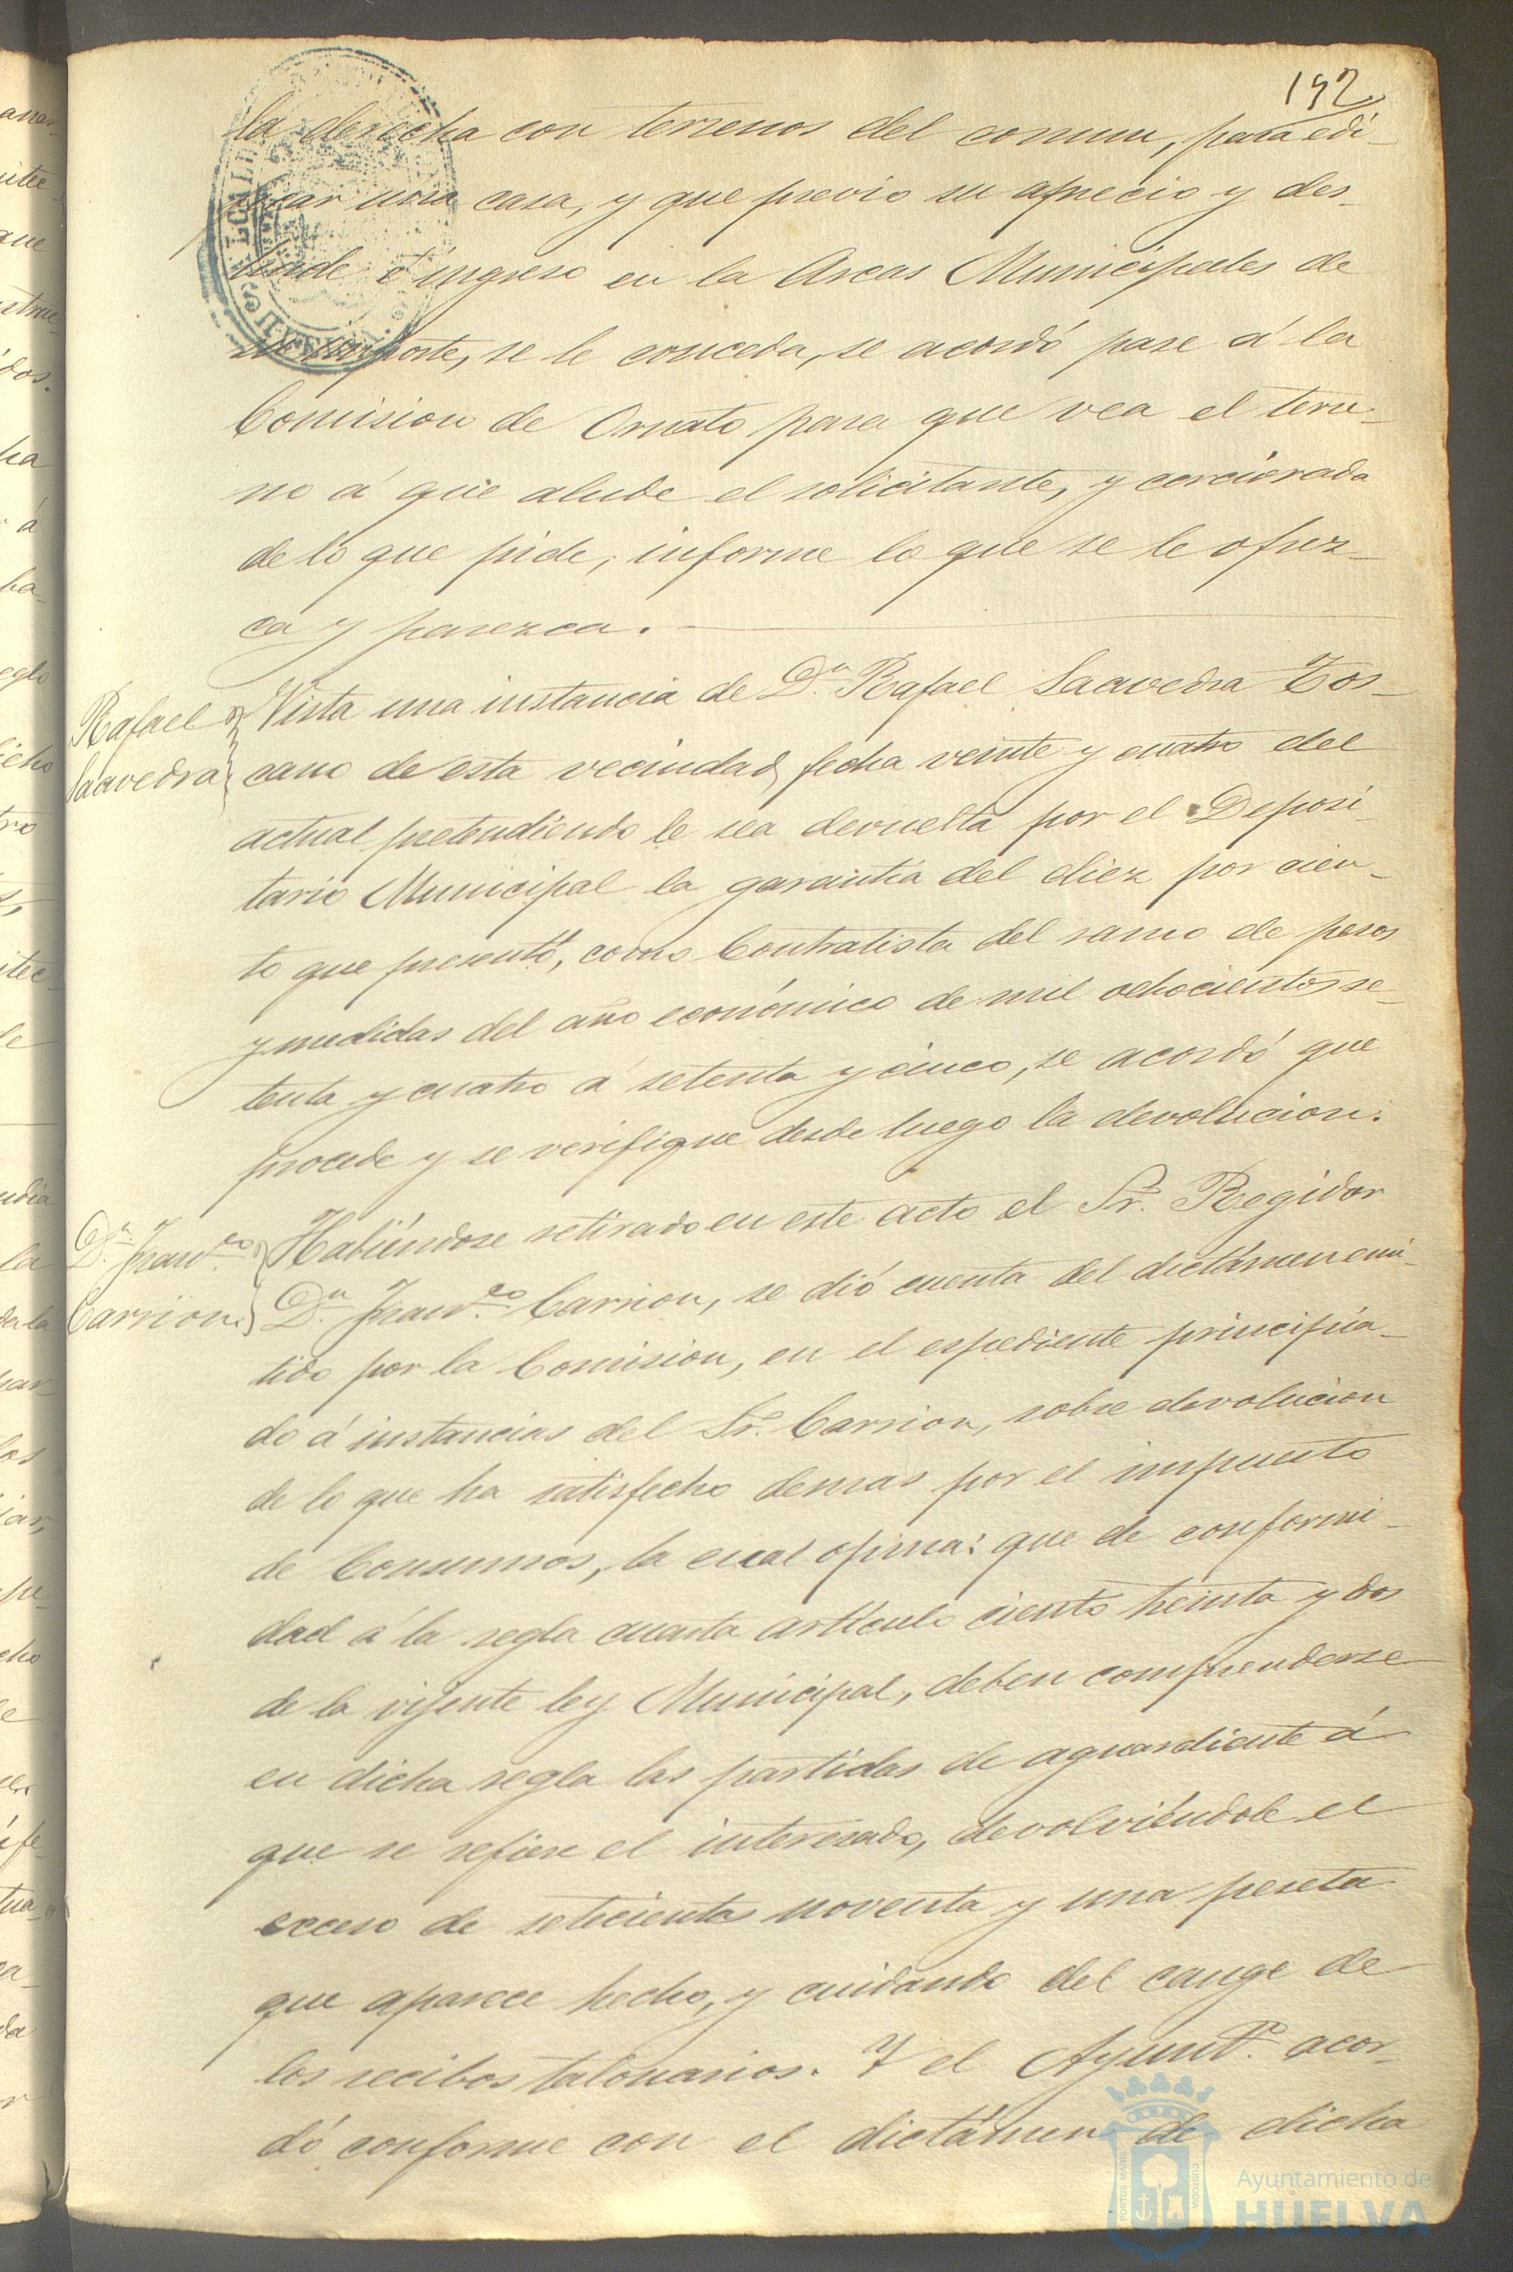 192
la derecha con terrenos del comun, para edi-
ficar una casa, y que previo su aprecio y des-
linde é ingreso en la Arcas Municipales de
su importe, se le conceda, se acordó pase á la
Comision de Ornato para que vea el terre-
no á que alude el solicitante, y cerciorada
de lo que pide, informe lo que se le ofrez-
ca y parezca.
Rafael
Saavedra
Vista una instancia de Dn. Rafael Saavedra Tos-
cano de esta vecindad, fecha veinte y cuatro del
actual pretendiendo le sea devuelta por el Deposi-
tario Municipal la garantía del diez por cien-
to que presentó, como Contratista del ramo de pesos
y medidas del año económico de mil ochocientos se-
tenta y cuatro á setenta y cinco, se acordó que
procede y se verifique desde luego la devolucion.
Dn. Franco.
Carrion.
Habiéndose retirado en este acto el Sr. Regidor
Dn. Franco. Carrion, se dió cuenta del dictámen emi-
tido por la Comision, en el espediente principia-
do á instancias del Sr. Carrion, sobre devolucion
de lo que ha satisfecho demas por el impuesto
de Consumos, la cual opina: que de conformi-
dad á la regla cuarta artículo ciento treinta y dos
de la vijente ley Municipal, deben comprenderse
en dicha regla las partidas de aguardiente á
que se refiere el interesado, devolviéndole el
exceso de setecientas noventa y una peseta
que aparece hecho, y cuidando del cange de
los recibos talonarios. Y el Ayunto. acor-
dó conforme con el dictámen de dicha
Ayuntamiento de
HUELVA